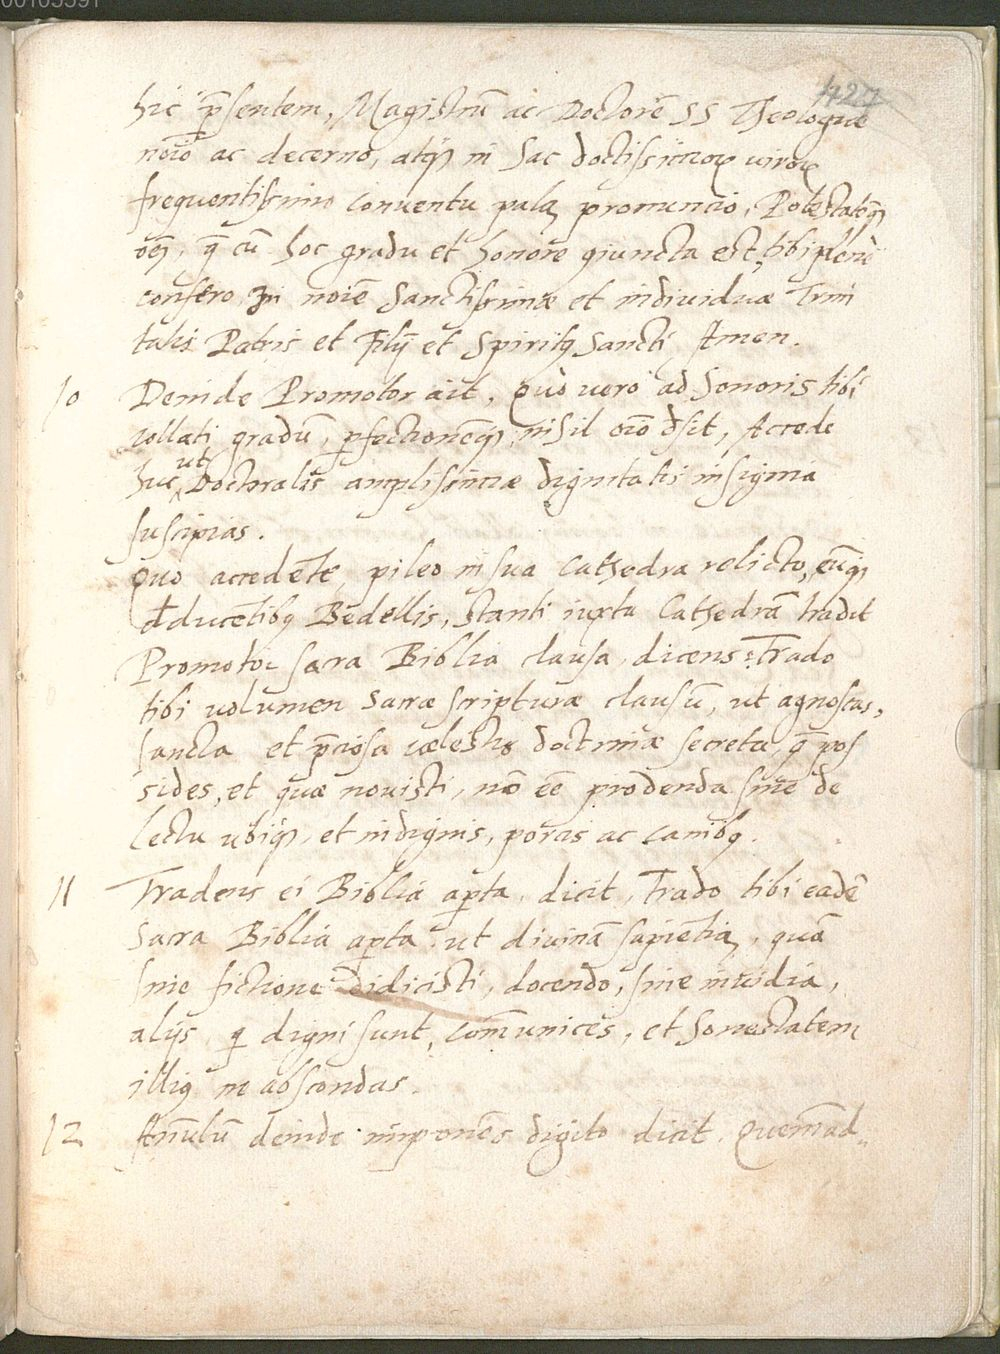 00105591
427
hic p̄sentem, Magistrū ac Doctorē SS Theologiæ
noīo ac decerno, atq₃ in hac doctissimoꝝ uiroꝝ
frequentissimo conuentu palā pronuncio, Potestatēq₃
oēm, q̄ cū hoc gradu et honore giuncta est, tibi plenè
confero, In noīe Sanctissimæ et indiuiduæ Trini
tatis Patris et Filij et Spiritꝰ Sancti Amen.
10 Deinde Promotor ait, Quò uero ad honoris tibi
collati gradū, ꝑfectionēq₃ nihil oīo dsit, Accede
huc ut Doctoralis amplissimæ dignitatis insignia
suscipias.
Quo accedēte, pileo in sua Cathedra relicto, eūq₃
dducētibꝰ Bedellis, stanti iuxta Cathedrā tradit
Promotor sacra Biblia clausa, dicens: Trado
tibi uolumen Sacræ scripturæ clausū, ut agnoscas,
sancta et p̄ciosa cælestis doctrinæ secreta, q̄ pos
sides, et quæ nouisti, nō eē prodenda sine de
lectu ubiq₃, et indignis, porcis ac canibꝰ.
11 Tradens ei Biblia aꝑta, dicit, Trado tibi eadē
Sacra Biblia aꝑta, ut diuinā sapiētiā, quā
sine fictione didicisti, docendo, sine inuidia,
alijs, q̄ digni sunt, com̄unices, et honestatem
illiꝰ ne abscondas.
12 An̄ulū deinde imponēs digito dicit, Quem̄ad„